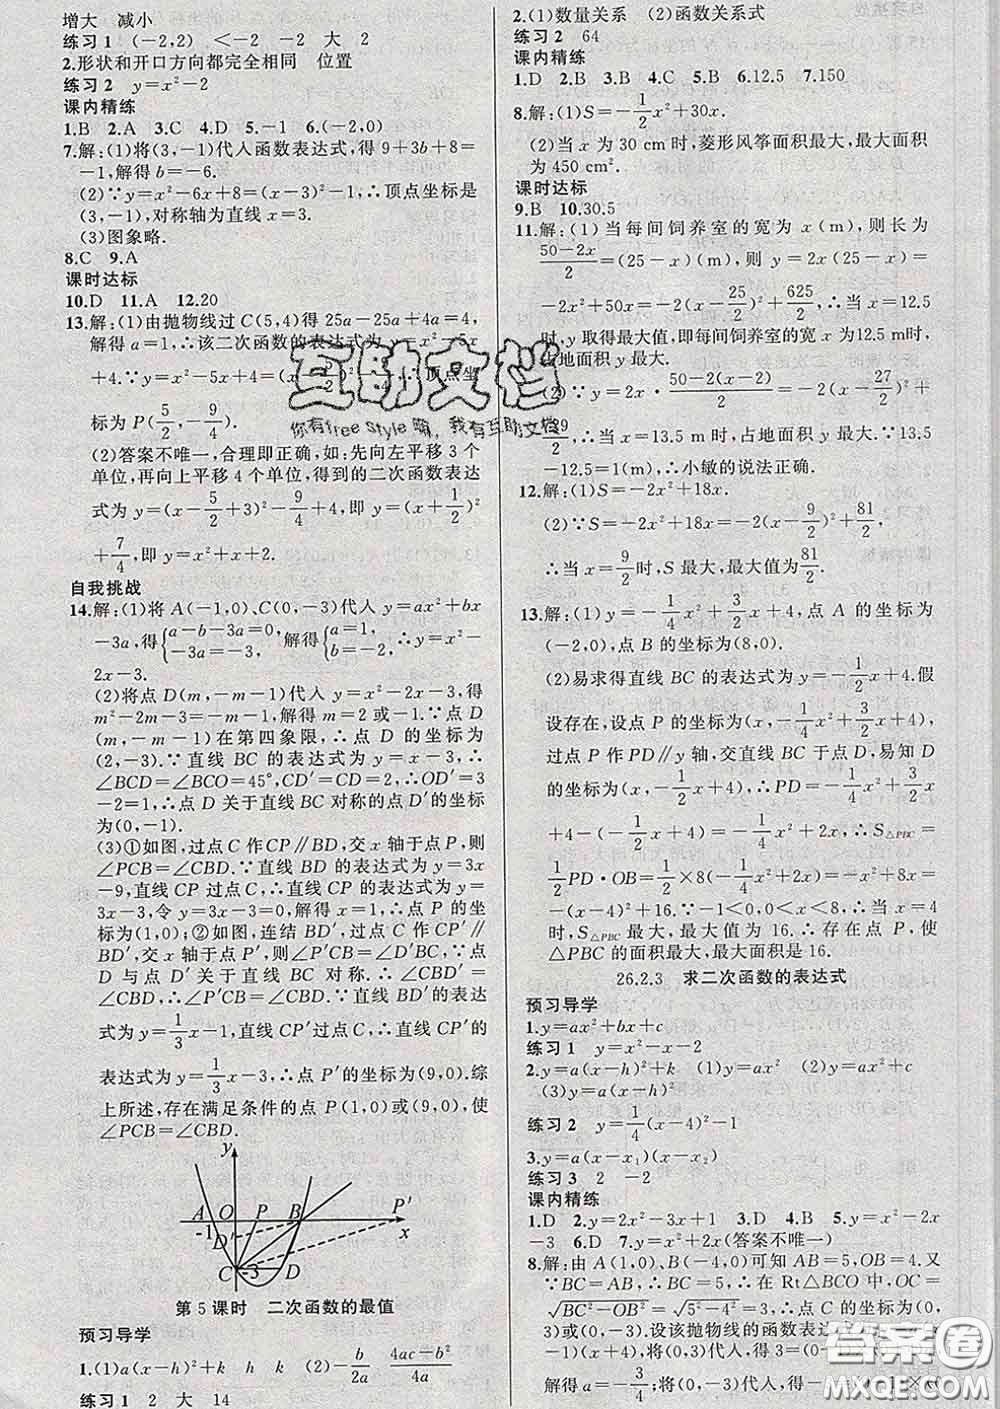 增大　减小
练习1　(−2,2)　＜−2　−2　大　2
2.形状和开口方向都完全相同　位置
练习2　y=x²−2
课内精练
1.B　2.A　3.C　4.D　5.−1　6.(−2,0)
7.解:(1)将(3,−1)代人函数表达式,得9+3b+8=
−1,解得b=−6.
(2)∵y=x²−6x+8=(x−3)²−1,∴顶点坐标是
(3,−1),对称轴为直线x=3.
(3)图象略.
8.C　9.A
课时达标
10.D　11.A　12.20
13.解:(1)由抛物线过C(5,4)得25a−25a+4a=4,
解得a=1,∴该二次函数的表达式为y=x²−5x
+4.∵y=x²−5x+4=(x−5/2)²−9/4,∴顶点坐
标为P(5/2,−9/4).
(2)答案不唯一,合理即正确,如:先向左平移3个
单位,再向上平移4个单位,得到的二次函数表达
式为y=(x−5/2+3)²−9/4+4,即y=(x+1/2)²
+7/4,即y=x²+x+2.
自我挑战
14.解:(1)将A(−1,0)、C(0,−3)代人y=ax²+bx
−3a,得{a−b−3a=0, −3a=−3, 解得{a=1, b=−2, ∴y=x²−
2x−3.
(2)将点D(m,−m−1)代人y=x²−2x−3,得
m²−2m−3=−m−1,解得m=2或−1.∵点
D(m,−m−1)在第四象限,∴点D的坐标为
(2,−3).∵直线BC的表达式为y=x−3,∴
∠BCD=∠BCO=45°,CD′=CD=2,∴OD′=3
−2=1,∴点D关于直线BC对称的点D′的坐标
为(0,−1).
(3)①如图,过点C作CP∥BD,交x轴于点P,则
∠PCB=∠CBD,∵直线BD的表达式为y=3x
−9,直线CP过点C,∴直线CP的表达式为y=
3x−3,令y=3x−3=0,解得x=1,∴点P的坐标
为(1,0);②如图,连结BD′,过点C作CP′∥
BD′,交x轴于点P′,则∠P′CB=∠D′BC,∵点
D与点D′关于直线BC对称.∴∠CBD′=
∠CBD,∴∠P′CB=∠CBD,∵直线BD′的表达
式为y=1/3x−1,∴直线CP′过点C,∴直线CP′的
表达式为y=1/3x−3,∴点P′的坐标为(9,0).综
上所述,存在满足条件的点P(1,0)或(9,0),使
∠PCB=∠CBD.
y
A　O　P　B　P′
−1　x
D′
C　−3　D
第5课时　二次函数的最值
预习导学
1.(1)a(x−h)²+k　h　k　(2)−b/2a　(4ac−b²)/4a
练习1　2　大　14
2.(1)数量关系　(2)函数关系式
练习2　64
课内精练
1.D　2.B　3.B　4.C　5.B　6.12.5　7.150
8.解:(1)S=−1/2x²+30x.
(2)当x为30 cm时,菱形风筝面积最大,最大面积
为450 cm².
课时达标
9.B　10.30.5
11.解:(1)当每间饲养室的宽为x(m),则长为
(50−2x)/2=(25−x)(m),则y=2x(25−x)=
−2x²+50x=−2(x−25/2)²+625/2,∴当x=12.5
时,y取得最大值,即每间饲养室的宽x为12.5 m时,
占地面积y最大.
(2)∵y=2x·(50−2(x−2))/2=−2(x−27/2)²+
729/2,∴当x=13.5 m时,占地面积y最大.∵13.5
−12.5=1(m),∴小敏的说法正确.
12.解:(1)S=−2x²+18x.
(2)∵S=−2x²+18x=−2(x−9/2)²+81/2,
∴当x=9/2时,S最大,最大值为81/2.
13.解:(1)y=−1/4x²+3/2x+4,点A的坐标为
(−2,0),点B的坐标为(8,0).
(2)易求得直线BC的表达式为y=−1/2x+4.假
设存在,设点P的坐标为(x,−1/4x²+3/2x+4),
过点P作PD∥y轴,交直线BC于点D,易知D
的坐标为(x,−1/2x+4),∴PD=−1/4x²+3/2x
+4−(−1/2x+4)=−1/4x²+2x,∴S△PBC=
1/2PD·OB=1/2×8(−1/4x²+2x)=−x²+8x=
−(x−4)²+16.∵−1<0,0<x<8,∴当x=4
时,S△PBC最大,最大值为16.∴存在点P,使
△PBC的面积最大,最大面积是16.
26.2.3　求二次函数的表达式
预习导学
1.y=ax²+bx+c
练习1　y=x²−x−2
2.y=a(x−h)²+k　(1)y=ax²　(2)y=ax²+c
(3)y=a(x−h)²
练习2　y=1/4(x−4)²−1
3.y=a(x−x₁)(x−x₂)
练习3　2　−2
课内精练
1.D　2.y=2x²−3x+1　3.D　4.B　5.y=x²−2x
−3　6.D　7.y=x²+2x(答案不唯一)
8.解:由A(1,0)、B(−4,0)可知AB=5,OB=4.又
∵BC=AB,∴BC=5,∴在Rt△BCO中,OC=
√(BC²−OB²)=√(5²−4²)=3,∴点C的坐标为(0,
3)或(0,−3).设该抛物线的函数表达式
−1)(x+4),将(0,3)代人,得3=(0
解得a=−3/4;将(0,−3)代人,得−3=
互助文档
你有free Style嘛，我有互助文档
答案圈
MXQE.COM